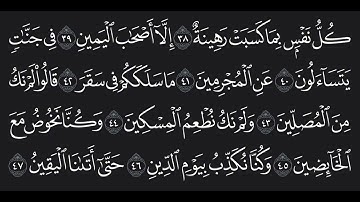 كُلُّ نَفْسٍۭ بِمَا كَسَبَتْ رَهِينَةٌ ٣٨ إِلَّآ أَصْحَٰبَ ٱلْيَمِينِ ٣٩ فِى جَنَّٰتٍ
يَتَسَآءَلُونَ ٤٠ عَنِ ٱلْمُجْرِمِينَ ٤١ مَا سَلَكَكُمْ فِى سَقَرَ ٤٢ قَالُوا۟ لَمْ نَكُ
مِنَ ٱلْمُصَلِّينَ ٤٣ وَلَمْ نَكُ نُطْعِمُ ٱلْمِسْكِينَ ٤٤ وَكُنَّا نَخُوضُ مَعَ
ٱلْخَآئِضِينَ ٤٥ وَكُنَّا نُكَذِّبُ بِيَوْمِ ٱلدِّينِ ٤٦ حَتَّىٰٓ أَتَىٰنَا ٱلْيَقِينُ ٤٧